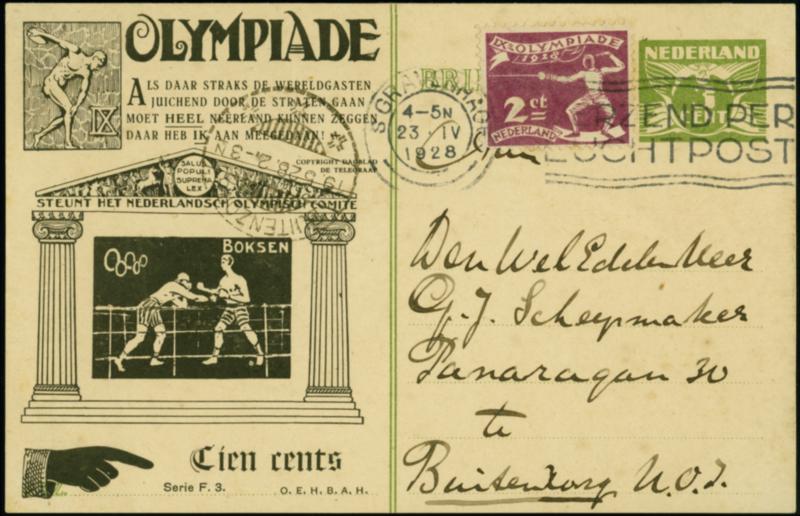 OLYMPIADE
ALS DAAR STRAKS DE WERELDGASTEN
JUICHEND DOOR DE STRATEN GAAN
MOET HEEL NEERLAND KUNNEN ZEGGEN
DAAR HEB IK AAN MEEGEDAAN!
IX
COPYRIGHT DAGBLAD
DE TELEGRAAF
SALUS
POPULI
SUPREMA
LEX
STEUNT HET NEDERLANDSCH OLYMPISCH COMITE
BOKSEN
Tien cents
Serie F. 3.
O. E. H. B. A. H.
IXE OLYMPIADE
1928
2ct
NEDERLAND
NEDERLAND
'S GRAVENHAGE
4-5N
23 IV
1928
RZEND PER
LUCHTPOST
Den WelEdelen Heer
G. J. Scheepmaker
Panaragan 30
te
Buitenzorg N.O.I.